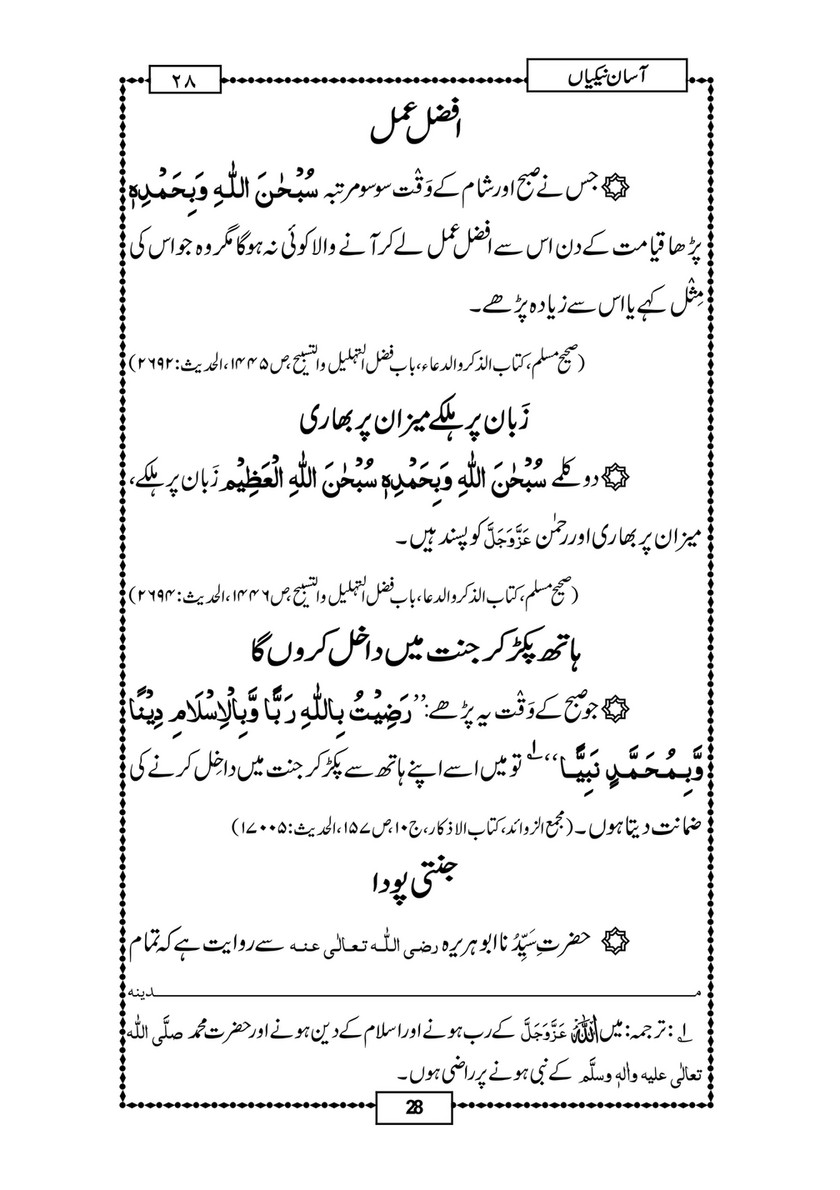 آسان نیکیاں
۲۸
افضل عمل
۞ جس نے صبح اور شام کے وَقْت سو سو مرتبہ سُبْحٰنَ اللّٰہِ وَبِحَمْدِہٖ
پڑھا قیامت کے دن اس سے افضل عمل لے کر آنے والا کوئی نہ ہوگا مگر وہ جو اس کی
مِثْل کہے یا اس سے زیادہ پڑھے۔
(صحیح مسلم، کتاب الذکر والدعاء، باب فضل التہلیل والتسبیح، ص۱۴۴۵، الحدیث:۲۶۹۲)
زَبان پر ہلکے میزان پر بھاری
۞ دو کلمے سُبْحٰنَ اللّٰہِ وَبِحَمْدِہٖ سُبْحٰنَ اللّٰہِ الْعَظِیْم زَبان پر ہلکے،
میزان پر بھاری اور رحمٰن عَزَّوَجَلَّ کو پسند ہیں۔
(صحیح مسلم، کتاب الذکر والدعا، باب فضل التہلیل والتسبیح، ص۱۴۴۶، الحدیث:۲۶۹۴)
ہاتھ پکڑ کر جنت میں داخل کروں گا
۞ جو صبح کے وَقْت یہ پڑھے:’’رَضِیْتُ بِاللّٰہِ رَبًّا وَّبِالْاِسْلَامِ دِیْنًا
وَّبِمُحَمَّدٍ نَبِیًّا‘‘ ۱؎ تو میں اسے اپنے ہاتھ سے پکڑ کر جنت میں داخِل کرنے کی
ضمانت دیتا ہوں۔ (مجمع الزوائد، کتاب الاذکار، ج۱۰، ص۱۵۷، الحدیث:۱۷۰۰۵)
جنتی پودا
۞ حضرتِ سَیِّدُنا ابو ہریرہ رضی اللّٰہ تعالٰی عنہ سے روایت ہے کہ تمام
مـــدینه
۱؎ : ترجمہ: میں اللّٰہ عَزَّوَجَلَّ کے رب ہونے اور اسلام کے دین ہونے اور حضرت محمد صلَّی اللّٰه
تعالٰی علیه واٰلهٖ وسلَّم کے نبی ہونے پر راضی ہوں۔
28